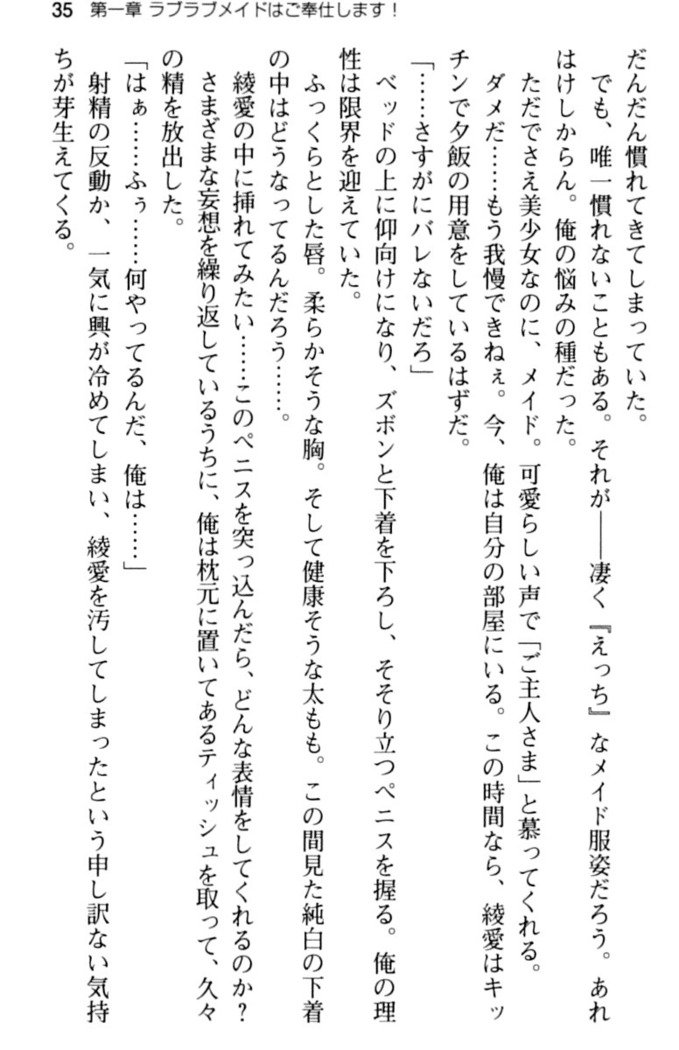 35 第一章 ラブラブメイドはご奉仕します！
だんだん慣れてきてしまっていた。
でも、唯一慣れないこともある。それが――凄く『えっち』なメイド服姿だろう。あれ
はけしからん。俺の悩みの種だった。
ただでさえ美少女なのに、メイド。可愛らしい声で「ご主人さま」と慕ってくれる。
ダメだ……もう我慢できねぇ。今、俺は自分の部屋にいる。この時間なら、綾愛はキッ
チンで夕飯の用意をしているはずだ。
「……さすがにバレないだろ」
ベッドの上に仰向けになり、ズボンと下着を下ろし、そそり立つペニスを握る。俺の理
性は限界を迎えていた。
ふっくらとした唇。柔らかそうな胸。そして健康そうな太もも。この間見た純白の下着
の中はどうなってるんだろう……。
綾愛の中に挿れてみたい……このペニスを突っ込んだら、どんな表情をしてくれるのか？
さまざまな妄想を繰り返しているうちに、俺は枕元に置いてあるティッシュを取って、久々
の精を放出した。
「はぁ……ふぅ……何やってるんだ、俺は……」
射精の反動か、一気に興が冷めてしまい、綾愛を汚してしまったという申し訳ない気持
ちが芽生えてくる。